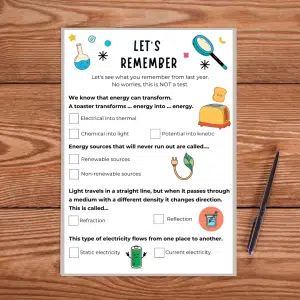 LET'S
REMEMBER
Let's see what you remember from last year.
No worries, this is NOT a test.
We know that energy can transform.
A toaster transforms ... energy into ... energy.
Electrical into thermal
Chemical into light
Potential into kinetic
Energy sources that will never run out are called....
Renewable sources
Non-renewable sources
Light travels in a straight line, but when it passes through
a medium with a different density it changes direction.
This is called...
Refraction
Reflection
This type of electricity flows from one place to another.
Static electricity
Current electricity